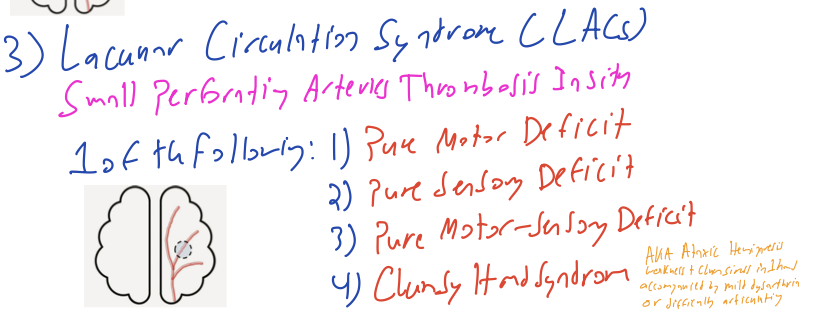 3) Lacunar Circulation Syndrome (LACs)
Small Perforating Arteries Thrombosis Insity
1 of th Following: 1) Pure Motor Deficit
2) Pure Sensory Deficit
3) Pure Motor-Sensory Deficit
4) Clumsy Hand Syndrom
AKA Ataxic Hemiparesis
weakness + clumsiness in 1 hand
accompanied by mild dysarthria
or difficulty articulating